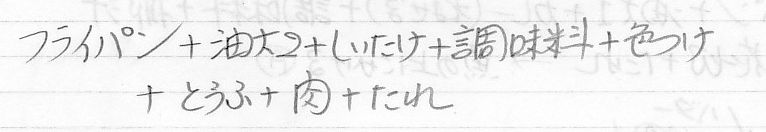 フライパン+油大2+しいたけ+調味料+色つけ
+とうふ+肉+たれ